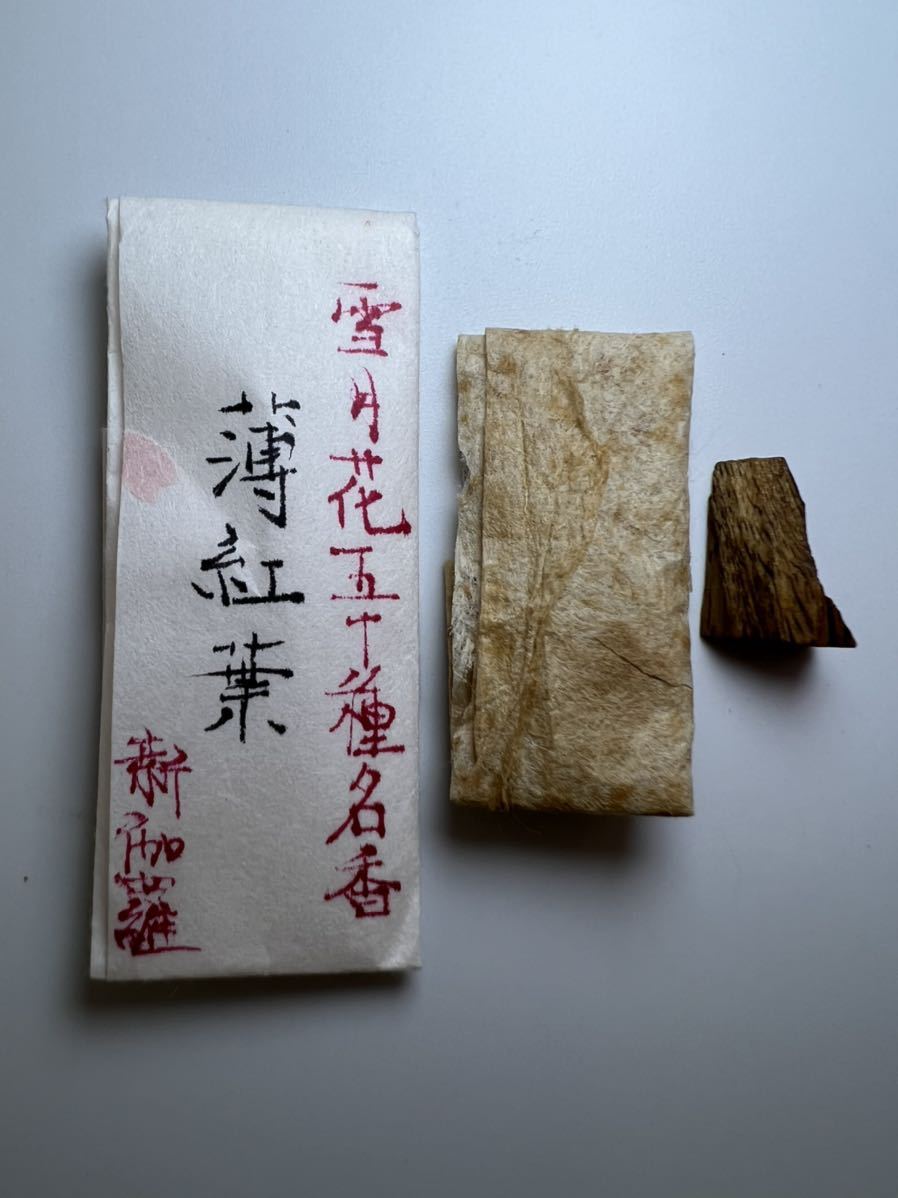 雪月花五十種名香
薄紅葉
新伽羅